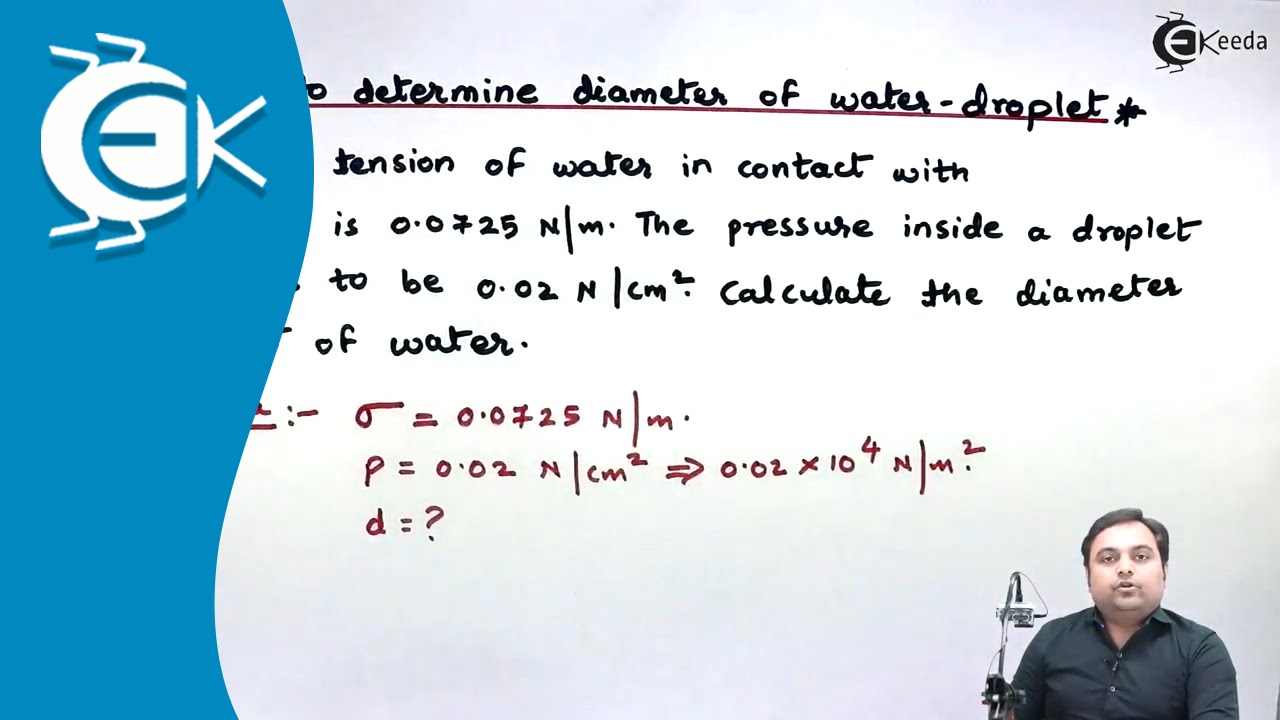 EKeeda
EK
to determine diameter of water-droplet *
tension of water in contact with
is 0.0725 N/m. The pressure inside a droplet
to be 0.02 N/cm². Calculate the diameter
of water.
:- σ = 0.0725 N/m.
P = 0.02 N/cm² ⇒ 0.02 × 10⁴ N/m².
d = ?